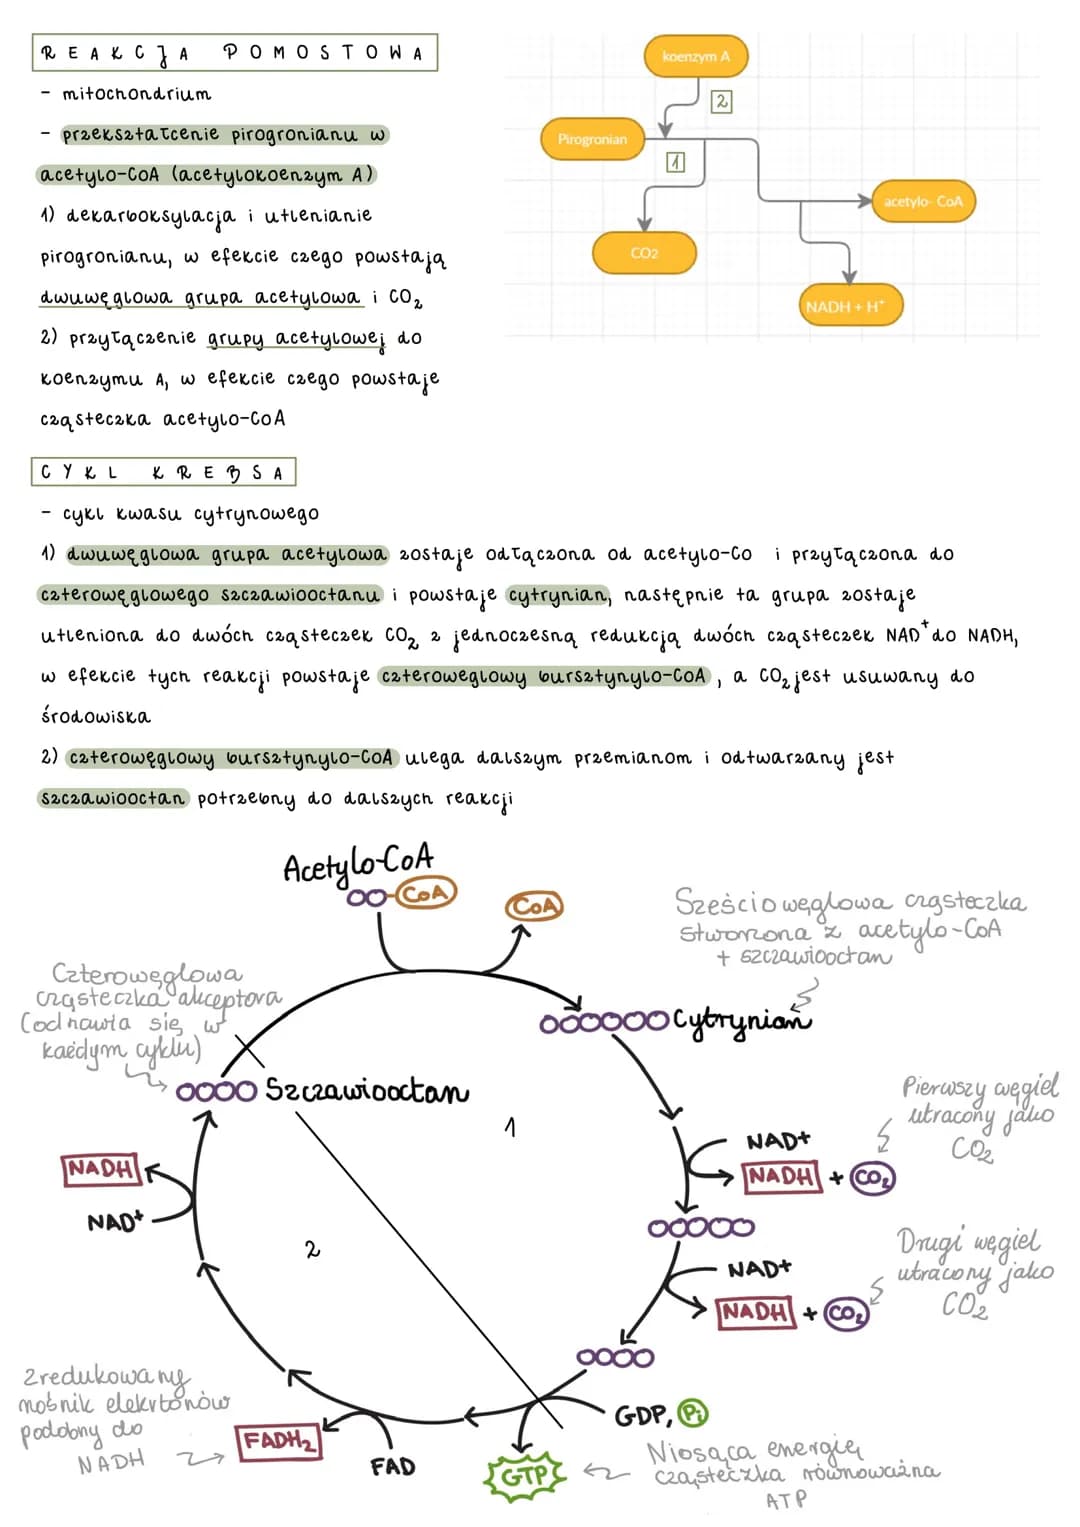 REAKCJA POMOSTOWA
- mitochondrium
- przekształcenie pirogronianu w
acetylo-CoA (acetylokoenzym A)
1) dekarboksylacja i utlenianie
pirogronianu, w efekcie czego powstają
dwuwęglowa grupa acetylowa i CO₂
2) przyłączenie grupy acetylowej do
koenzymu A, w efekcie czego powstaje
cząsteczka acetylo-CoA
koenzym A
2
Pirogronian
1
acetylo- CoA
CO2
NADH + H⁺
CYKL KREBSA
- cykl kwasu cytrynowego
1) dwuwęglowa grupa acetylowa zostaje odłączona od acetylo-Co i przyłączona do
czterowęglowego szczawiooctanu i powstaje cytrynian, następnie ta grupa zostaje
utleniona do dwóch cząsteczek CO₂ z jednoczesną redukcją dwóch cząsteczek NAD⁺ do NADH,
w efekcie tych reakcji powstaje czteroweglowy bursztynylo-CoA, a CO₂ jest usuwany do
środowiska
2) czterowęglowy bursztynylo-CoA ulega dalszym przemianom i odtwarzany jest
szczawiooctan potrzebny do dalszych reakcji
Acetylo-CoA
CoA
CoA
Sześciowęglowa cząsteczka
stworzona z acetylo-CoA
+ szczawiooctan
Czterowęglowa
cząsteczka akceptora
(odnawia się w
każdym cyklu)
Cytrynian
Szczawiooctan
1
Pierwszy węgiel
utracony jako
CO₂
NAD+
NADH + CO₂
NADH
NAD+
2
Drugi węgiel
utracony jako
CO₂
NAD+
NADH + CO₂
Zredukowany
nośnik elektronów
podobny do
NADH
FADH₂
FAD
GDP, Pi
GTP
Niosąca energię
cząsteczka równoważna
ATP